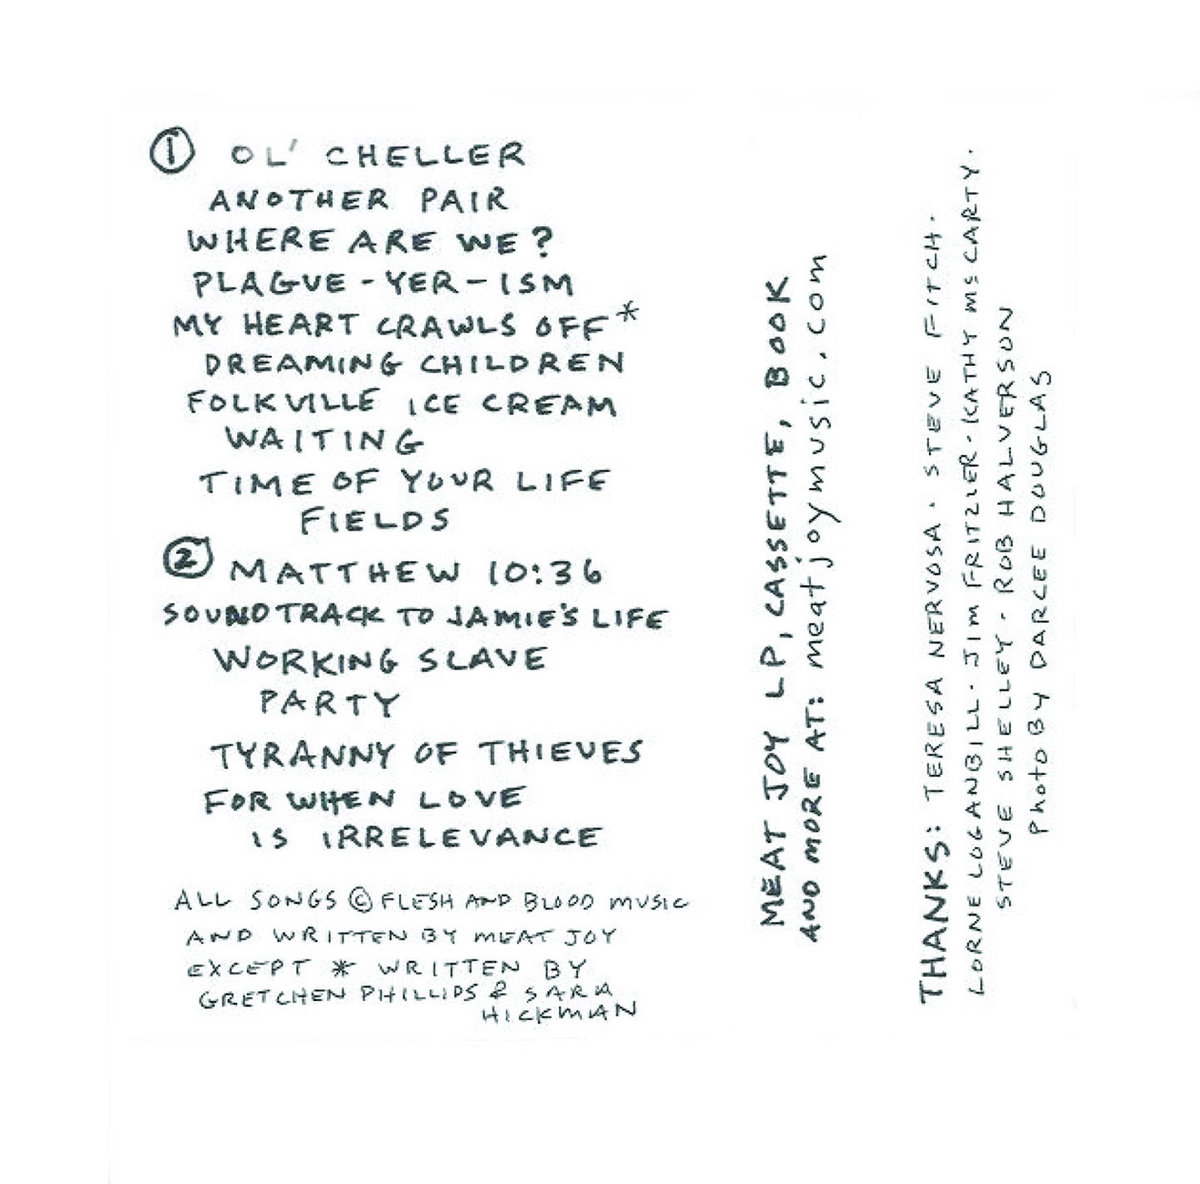 ① OL' CHELLER
ANOTHER PAIR
WHERE ARE WE?
PLAGUE-YER-ISM
MY HEART CRAWLS OFF*
DREAMING CHILDREN
FOLKVILLE ICE CREAM
WAITING
TIME OF YOUR LIFE
FIELDS
② MATTHEW 10:36
SOUNDTRACK TO JAMIE'S LIFE
WORKING SLAVE
PARTY
TYRANNY OF THIEVES
FOR WHEN LOVE
IS IRRELEVANCE
ALL SONGS © FLESH AND BLOOD MUSIC
AND WRITTEN BY MEAT JOY
EXCEPT * WRITTEN BY
GRETCHEN PHILLIPS & SARA
HICKMAN
MEAT JOY LP, CASSETTE, BOOK
AND MORE AT: meatjoymusic.com
THANKS: TERESA NERVOSA · STEVE FITCH ·
LORNE LOGANBILL · JIM FRITZLER · KATHY McCARTY ·
STEVE SHELLEY · ROB HALVERSON
Photo BY DARCEE DOUGLAS